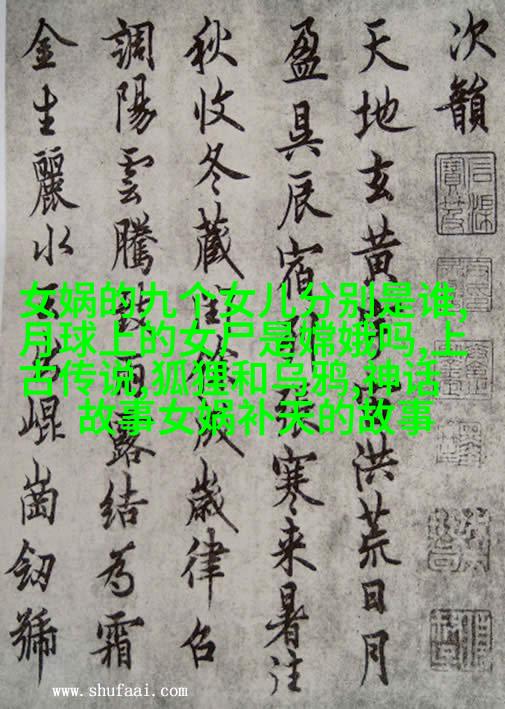 次韻
天地玄黄洪荒日月
盈昃辰宿張寒来暑往
秋收冬藏閏成歲律召
調陽雲騰雨露結為霜
金生麗水出崐崗劒號
女娲的九个女儿分别是谁,
月球上的女尸是嫦娥吗,上
古传说,狐狸和乌鸦,神话
故事女娲补天的故事
www.shufaai.com